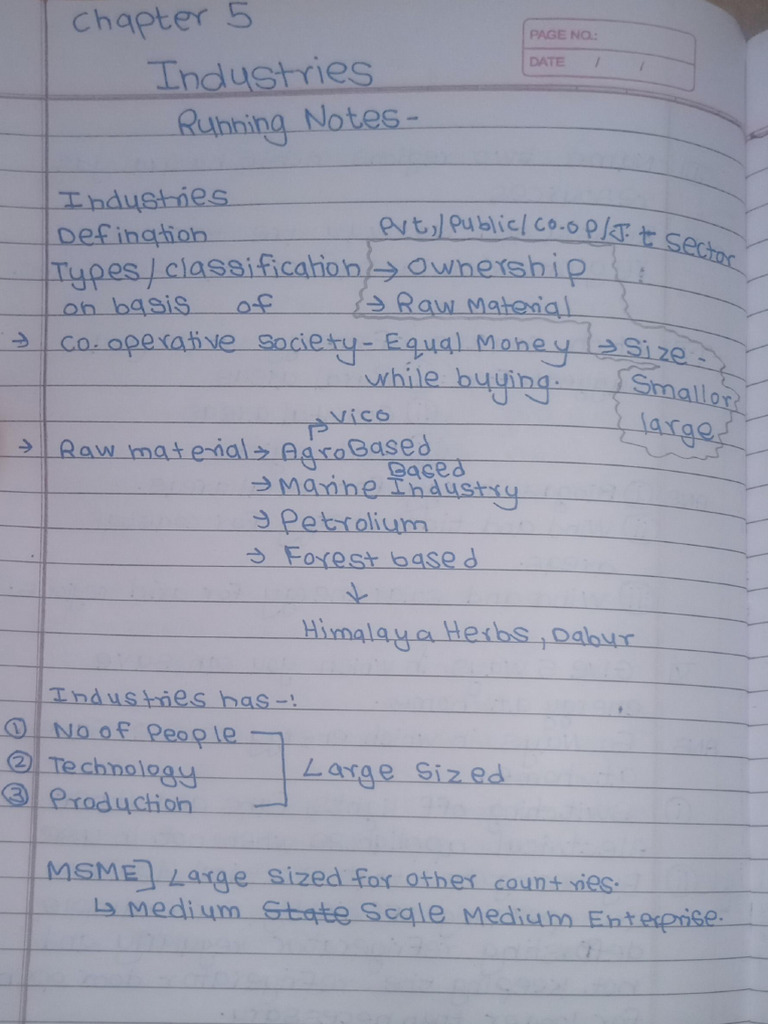 Chapter 5
PAGE NO.:
DATE / /
Industries
Running Notes-
Industries
Defination
Pvt,/Public/Co.op/J.t sector
Types/classification → Ownership
on basis of → Raw Material
→ Co.operative society - Equal Money → Size -
while buying.
Small or
large
→ Vico
→ Raw material → Agro Based
Based
→ Marine Industry
→ Petrolium
→ Forest based
↓
Himalaya Herbs, Dabur
Industries has-:
① No of People
② Technology
Large Sized
③ Production
MSME] Large sized for other countries.
↳ Medium State Scale Medium Enterprise.